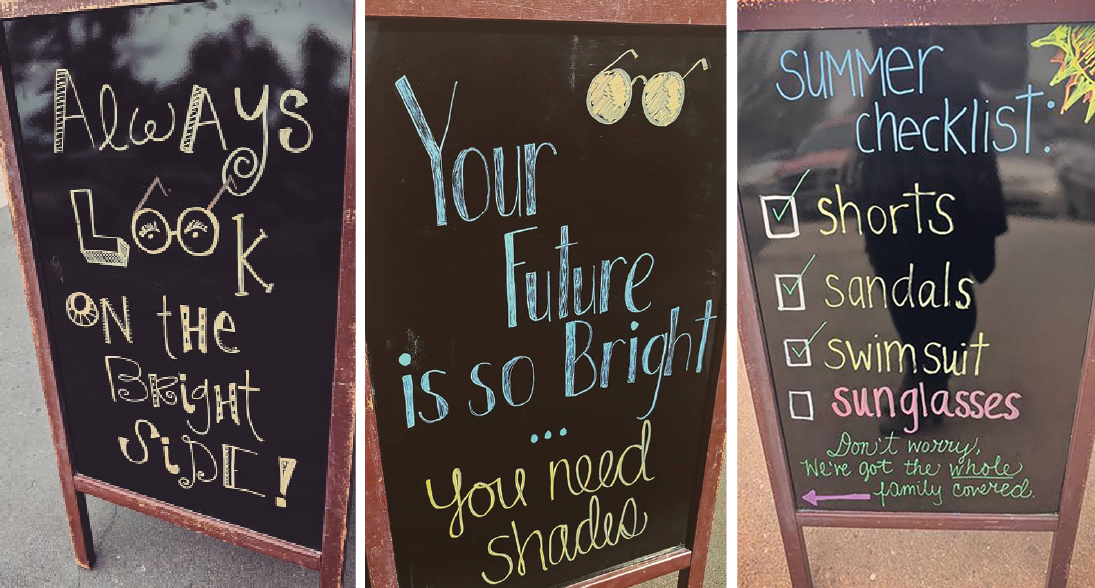 Always
Look
on the
Bright
Side!
Your
Future
is so Bright
...
You need
shades
summer
checklist:
shorts
sandals
swimsuit
sunglasses
Don't worry,
We've got the whole
family covered.